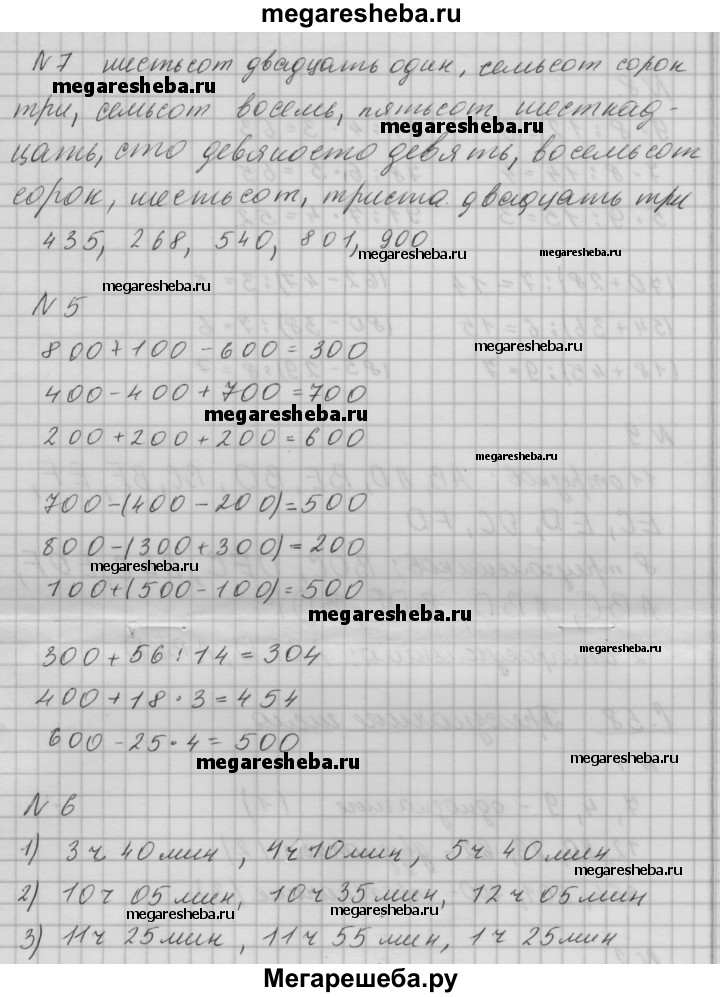 megaresheba.ru
N 7 шестьсот двадцать один, семьсот сорок
megaresheba.ru
три, семьсот восемь, пятьсот шестнад-
megaresheba.ru
цать, сто девяносто девять, восемьсот
сорок, шестьсот, триста двадцать три
435, 268, 540, 801, 900
megaresheba.ru
megaresheba.ru
N 5
800+100-600=300
megaresheba.ru
400-400+700=700
megaresheba.ru
200+200+200=600
megaresheba.ru
700-(400-200)=500
800-(300+300)=200
megaresheba.ru
100+(500-100)=500
megaresheba.ru
300+56:14=304
megaresheba.ru
400+18·3=454
600-25·4=500
megaresheba.ru
megaresheba.ru
N 6
1) 3ч 40мин, 4ч 10мин, 5ч 40мин
2) 10ч 05мин, 10ч 35мин, 12ч 05мин
megaresheba.ru megaresheba.ru
3) 11ч 25мин, 11ч 55мин, 1ч 25мин
megaresheba.ru
Мегарешеба.ру